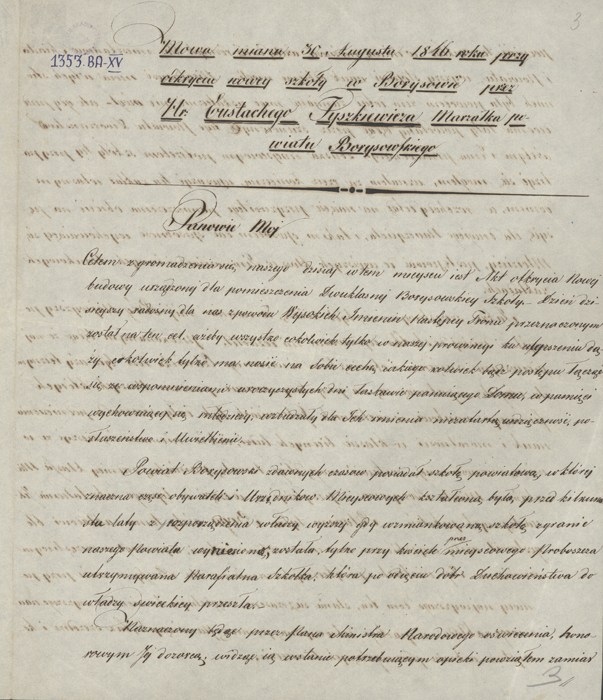 3
1353.BA-XV
Mowa miana 30 Augusta 1846 roku przy
odkryciu nowey szkoły w Borysowie przez
Hr. Eustachego Tyszkiewicza Marszałka po-
wiatu Borysowskiego
Panowie Moj
Celem zgromadzenia się naszego dzisiaj w tem mieyscu iest Akt otkrycia Nowej
budowy urządzonej dla pomieszczenia Dwuklasnej Borysowskiej Szkoły. Dzień dzi-
siejszy radosny dla nas z powodu Wysokich Imienin Następcy Tronu przeznaczonym
został na ten cel, ażeby wszystko cokolwiek tylko w naszej prowincyi ku ulepszeniu dą-
ży, cokolwiek tylko ma nosić na sobie cechę iakiego kolwiek bądź postępu łączyło
się ze wspomnieniami uroczystych dni łaskawie panującego Domu, w pamięci
wychowującej się młodzieży, wzbudzały dla Jch imienia niezatartą wdzięczność, po-
słuszeństwo i Uwielbienie.
Powiat Borysowski zdawnych czasów posiadał szkołę powiatową, w której
znaczna część obywateli i Urzędników Mieyscowych kształconą była, przed kilkuna-
stu laty z rozporządzenia władzy wyższej gdy wzmiankowana szkoła z granic
naszego Powiatu wyniesioną została, tylko przy kościele przez mieyscowego Proboszcza
utrzymywana Parafialna Szkółka, która po odjęciu dóbr Duchowieństwa do
władzy świeckiej przeszła.
Naznaczony będąc przez Pana Ministra Narodowego oświecenia, hono-
rowym Jej dozorcą, widząc ią w stanie potrzebującym opieki powziąłem zamiar
3